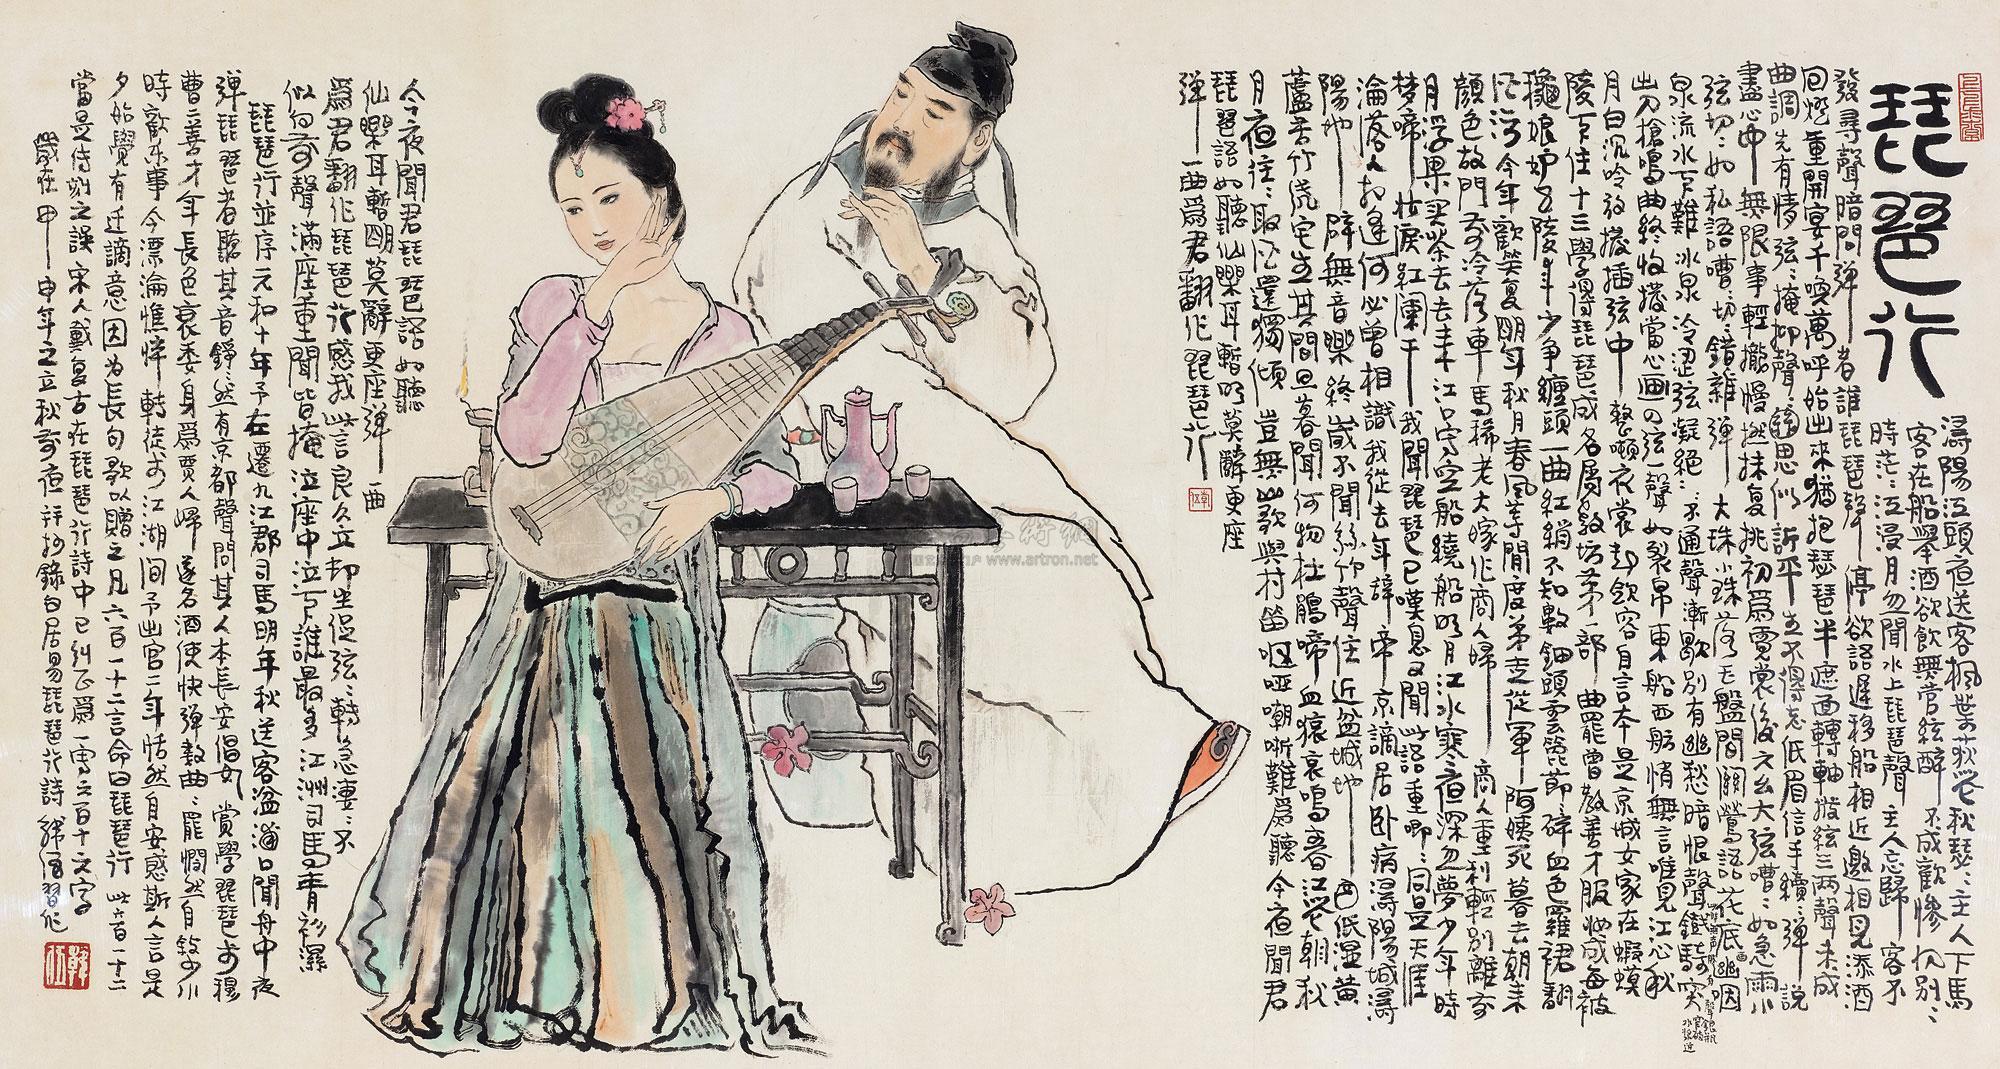 琵琶行
潯陽江頭夜送客楓葉荻花秋瑟〻主人下馬
客在船舉酒欲飲無管絃醉不成歡慘將別〻
時茫〻江浸月忽聞水上琵琶聲主人忘歸客不
發尋聲暗問彈者誰琵琶聲停欲語遲移船相近邀相見添酒
回燈重開宴千喚萬呼始出來猶抱琵琶半遮面轉軸撥絃三兩聲未成
曲調先有情弦〻掩抑聲〻思似訴平生不得志低眉信手續〻彈說
盡心中無限事輕攏慢撚抹復挑初爲霓裳後六幺大弦嘈〻如急雨小
弦切〻如私語嘈〻切〻錯雜彈大珠小珠落玉盤間關鶯語花底幽咽
泉流水下難冰泉冷澀弦凝絕〻不通聲漸歇別有幽愁暗恨聲鐵騎突
出刀槍鳴曲終收撥當心画四弦一聲如裂帛東船西舫悄無言唯見江心秋
月白沉吟放撥插弦中整頓衣裳起斂容自言本是京城女家在蝦蟆
陵下住十三學得琵琶成名屬教坊第一部曲罷曾教善才服妝成每被
龝娘妒五陵年少爭纏頭一曲紅綃不知數鈿頭雲篦節〻碎血色羅裙翻
酒污今年歡笑復明年秋月春風等閒度弟走從軍阿姨死暮去朝來
顏色故門前冷落車馬稀老大嫁作商人婦商人重利輕別離前
月浮梁买茶去去來江口守空船繞船明月江水寒夜深忽夢少年時
梦啼妝淚紅闌干我聞琵琶已嘆息又聞此語重唧〻同是天涯
淪落人相逢何必曾相識我從去年辭帝京謫居卧病潯陽城潯
陽地僻無音樂終歲不聞絲竹聲住近湓城地低濕黄
蘆苦竹繞宅生其間旦暮聞何物杜鵑啼血猿哀鳴春江花朝秋
月夜往〻取酒還獨傾豈無山歌與村笛嘔啞嘲哳難爲聽今夜聞君
琵琶語如聽仙樂耳暫明莫辭更座
彈一曲爲君翻作琵琶行
今夜聞君琵琶語如聽
仙樂耳暫明莫辭更座彈一曲
爲君翻作琵琶行感我此言良久立却坐促弦〻轉急淒〻不
似向前聲滿座重聞皆掩泣座中泣下誰最多江洲司馬青衫濕
琵琶行並序元和十年予左遷九江郡司馬明年秋送客湓浦口聞舟中夜
彈琵琶者聽其音錚〻然有京都聲問其人本長安倡女嘗學琵琶於穆
曹二善才年長色衰委身爲賈人婦遂名酒使快彈數曲〻罷憫然自敘少小
時歡樂事今漂淪憔悴轉徒於江湖間予出官二年恬然自安感斯人言是
夕始覺有迁謫意因为長句歌以贈之凡六百一十二言命曰琵琶行此六百一十二
當是侍刻之誤宋人戴复古在琵琶行詩中已糾正爲一實六百十六字
歲在甲申年之立秋前夜評抄錄白居易琵琶行詩韓伍習作
韓伍
www.artron.net